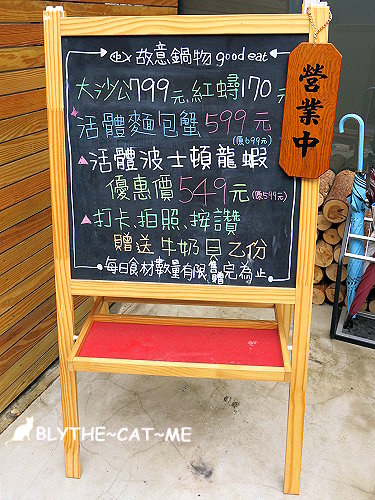 故意鍋物 good eat
大沙公799元、紅蟳170元
活體麵包蟹599元
(原699元)
活體波士頓龍蝦
優惠價549元(原599元)
打卡、拍照、按讚
贈送牛奶貝乙份
每日食材數量有限,售完為止
贈
營業中
BLYTHE~CAT~ME